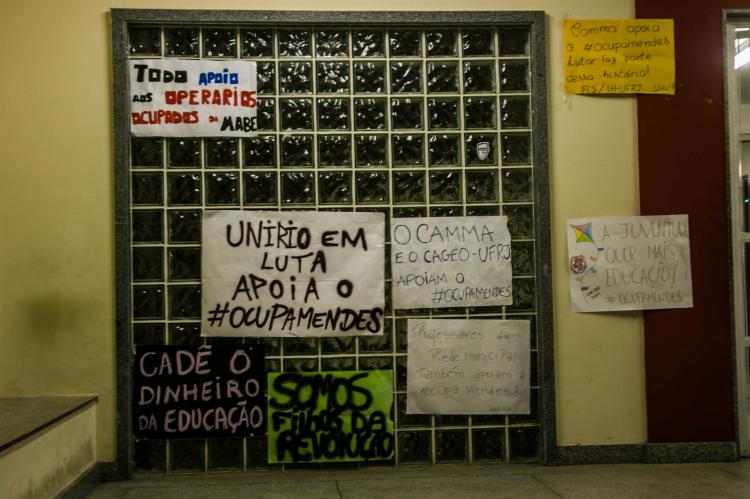 TODO APOIO
AOS OPERARIOS
OCUPADOS DA
MABE
Camma apoia
o #ocupamendes
Lutar faz parte
dessa história!
IFCS/IH-UFRJ
UNIRIO EM
LUTA
APOIA O
#OCUPAMENDES
O CAMMA
E O CAGEO-UFRJ
APOIAM O
#OCUPAMENDES
A JUVENTUDE
QUER MAIS
EDUCAÇÃO!
#OCUPAMENDES
CADÊ O
DINHEIRO
DA EDUCAÇÃO
SOMOS
FILHOS DA
REVOLUÇÃO
Professores da
Rede municipal
Também apoiam a
ocupa Mendes!